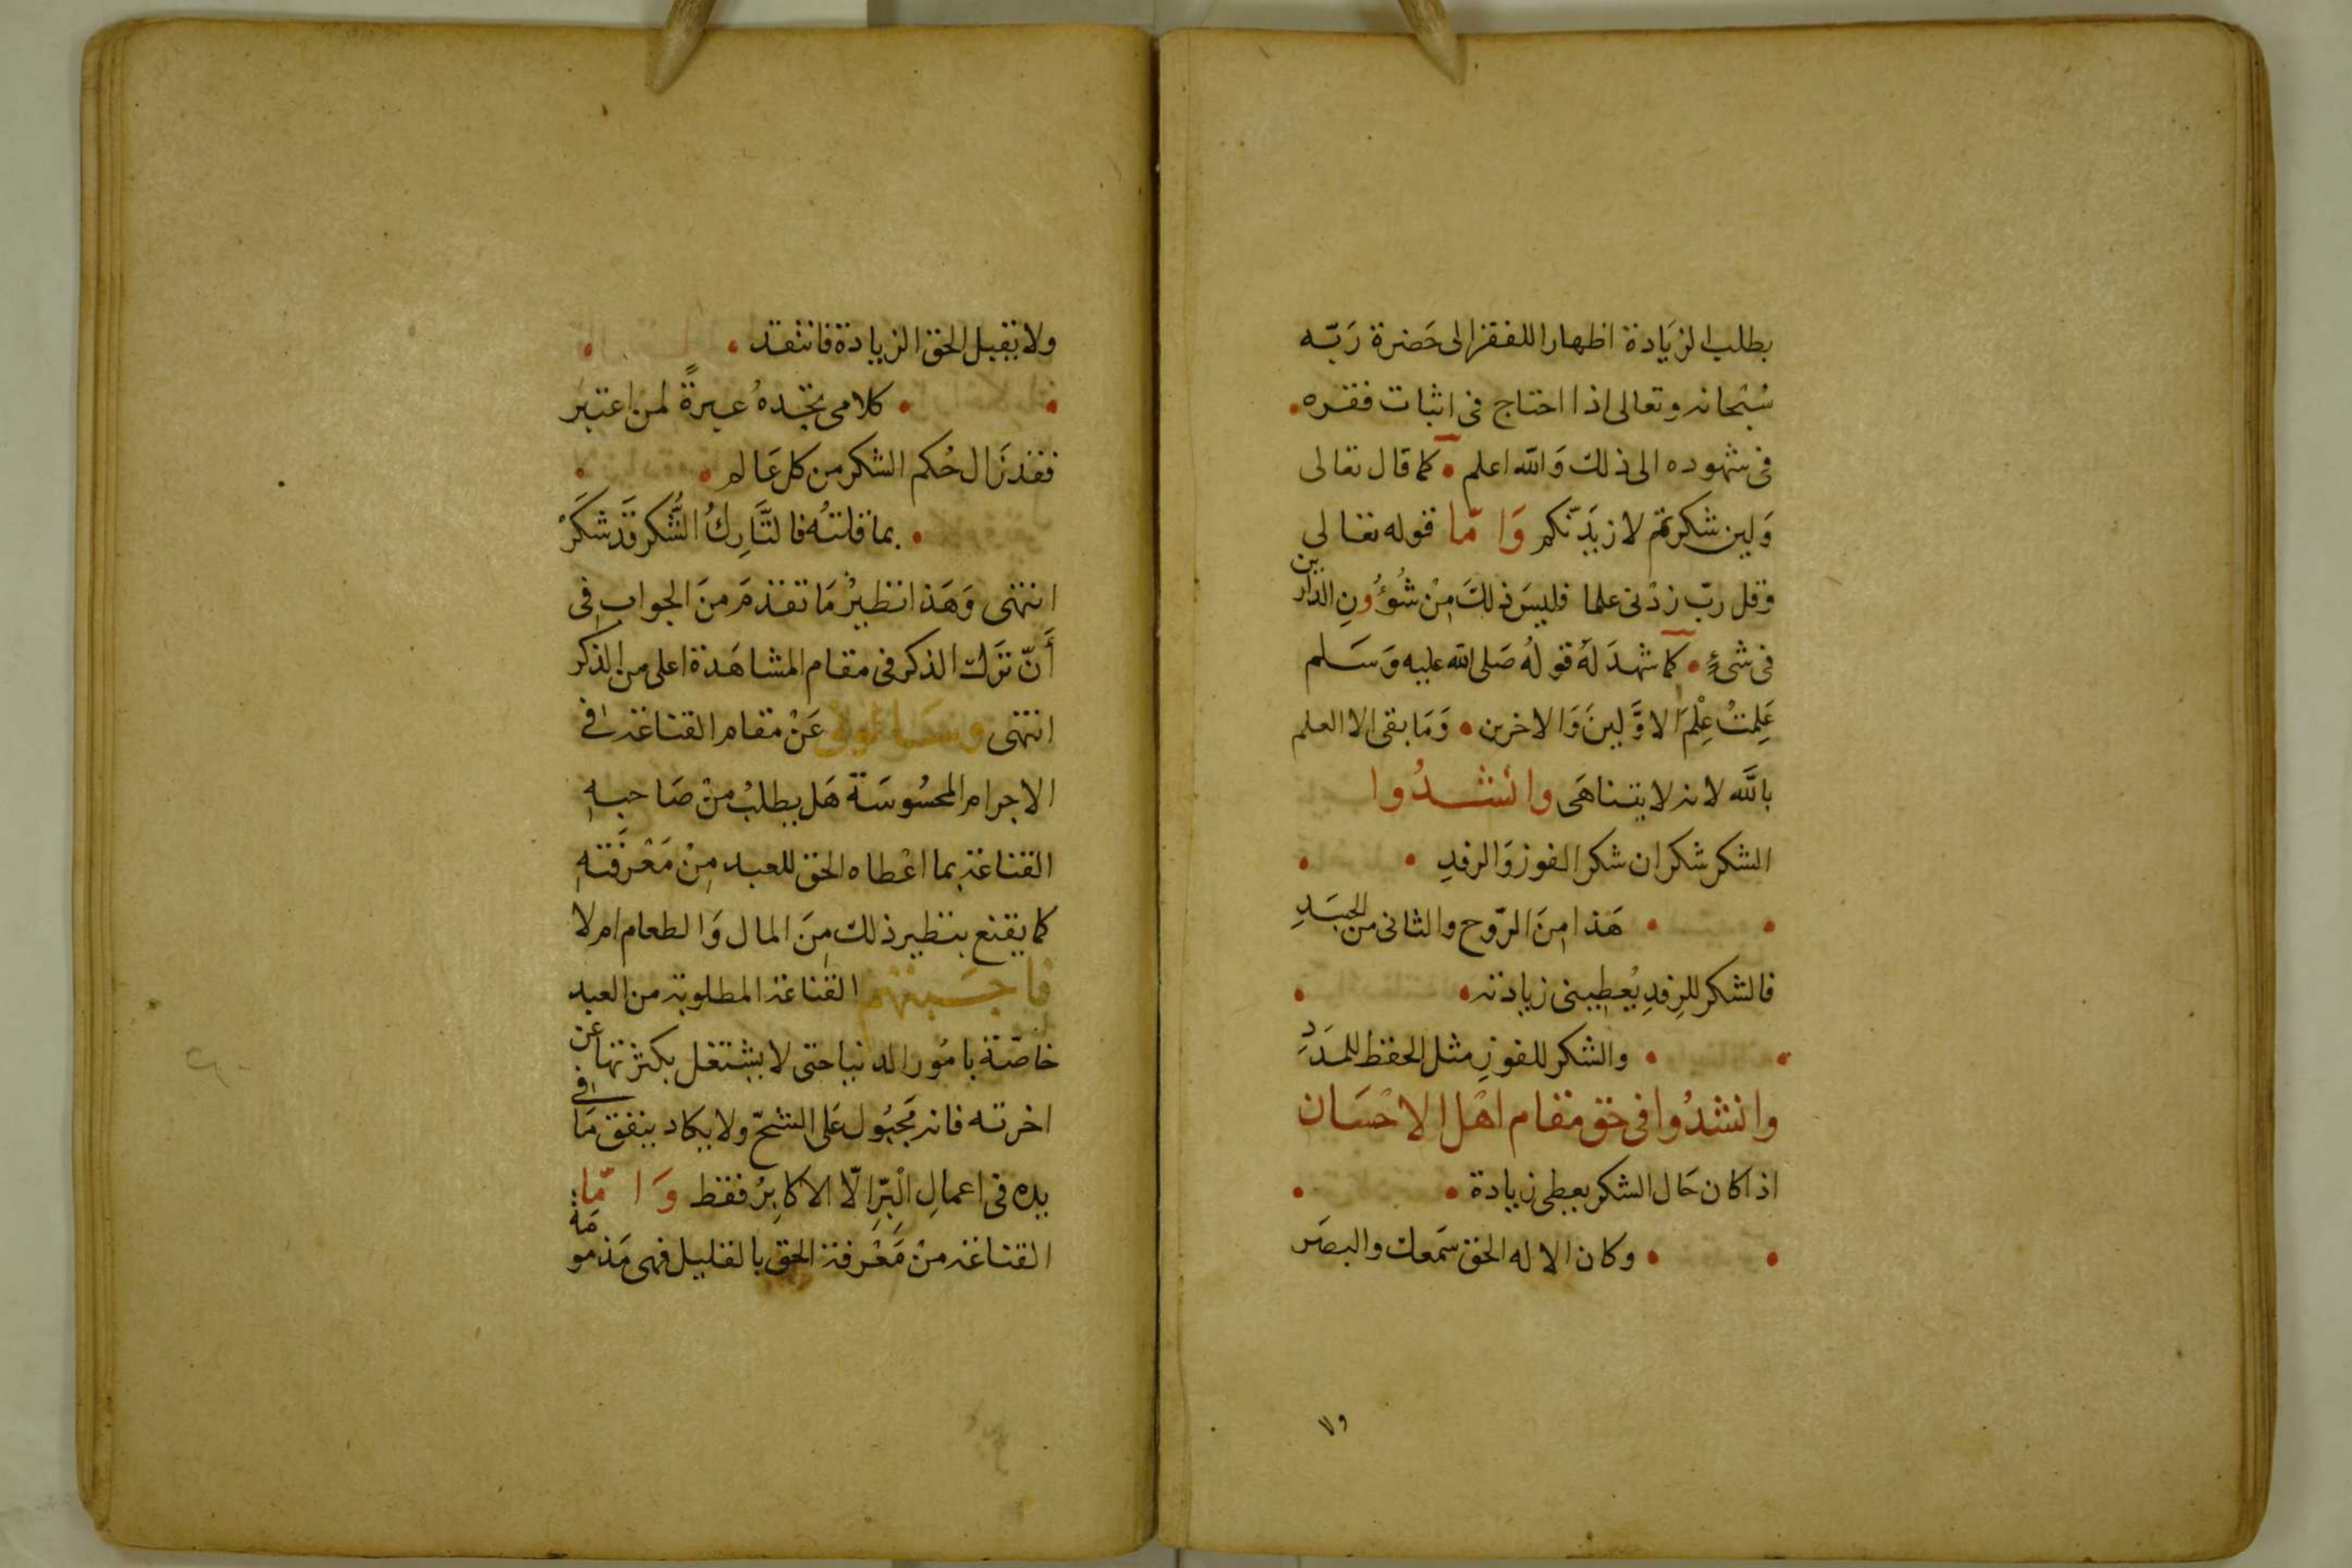 بطلب الزيادة اظهارا للفقر الى حَضرة رَبّه
سُبْحانه وتعالى اذا احتاج فى اثبات فقره
فى شهوده الى ذلك وَالله اعلم • كما قال تعالى
وَلين شكرتم لازيَدّنكم وَامّا قوله تعالى
وقل ربّ زدْنى علما فليسَ ذلكَ مِنْ شُوُؤنِ الدارين
فى شىءٍ • كما شهدَ لهُ قولُه صَلى الله عليه وَسَلم
عَلِمتُ عِلْمَ الاوَّلينَ وَالاخرين • وَمَا بقى الا العلم
بالله لانه لا يتناهَى وانشدُوا
الشكر شكران شكر الفوز وَالرفدِ •
• هَذا مِنَ الرّوح والثانى من الجسَدِ
فالشكر للرِفدِ يُعطِينى زيادته •
• والشكر للفوزِ مثل الحفظ للمَدَدِ
وانشدُوا فى حق مقام اهْل الاحْسَان
اذا كان حَال الشكر يعطى زيادة •
• وكان الاله الحق سَمعك والبصَر
٧٩
ولا تقبل الحق الزيادة فانتقد •
• كلامى تجدهُ عبرةً لمن اعتبَر
فقد زَال حُكم الشكر من كل عَالم •
• بما قلتهُ فالتَّارِكُ الشُّكر قَد شكَرْ
انتهى وَهَذا نظيرُ مَا تقدَمَ منَ الجواب فى
أَنّ تَرك الذكر فى مقام المشاهَدة اعلى من الذكر
انتهى وسَالونى عَنْ مقام القناعة فى
الاجرام المحسُوسَة هَل يطلبُ منْ صَاحبهِ
القناعة بما اعْطاه الحق للعبد مِنْ مَعْرفَتهِ
كما يقنع بنظير ذلك مِنَ المال وَالطعام ام لا
فاجَبتهم القناعة المطلوبة من العبد
خاصّة بامُور الدنيا حتى لا يشتغل بكثرتها عن
اخرته فانه مَجبُول عَلى الشحّ ولا يكاد ينفق مَا فى
يده فى اعمالِ الْبِرِّ الّا الاكابِرُ فقط وَامّا
القناعة منْ مَعْرفة الحق بالقليل فهى مَذمومَة